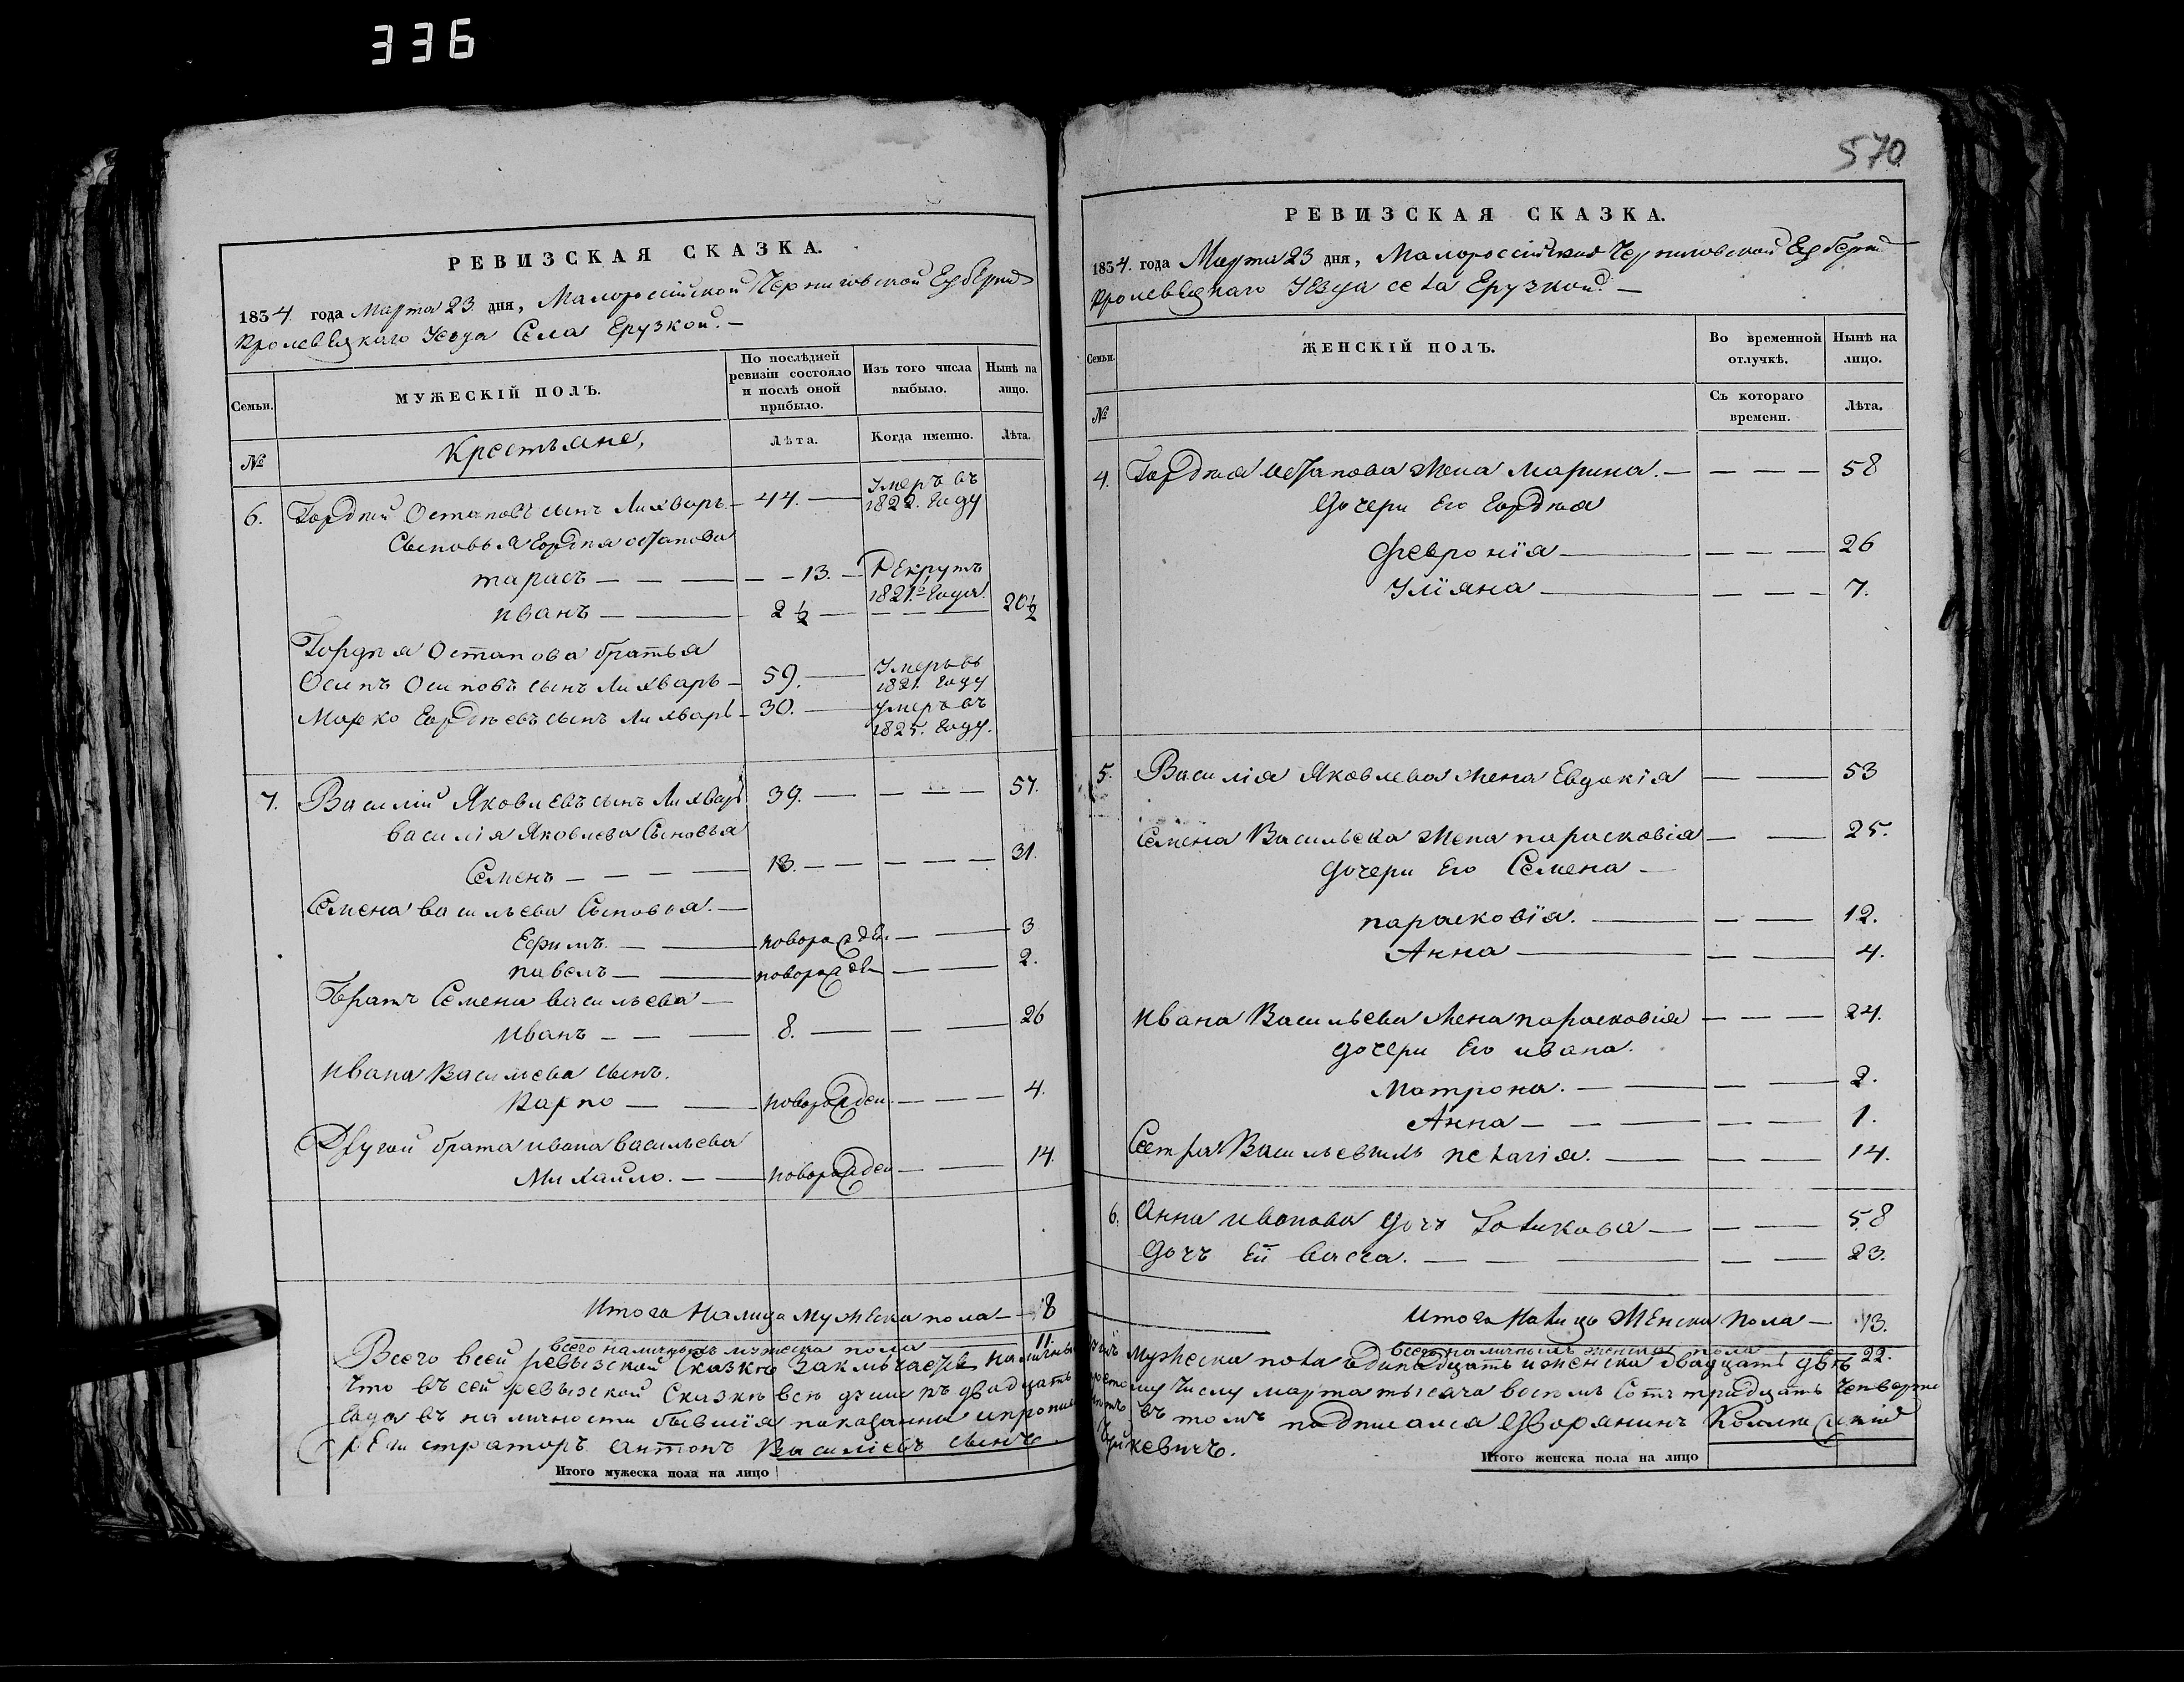 336
РЕВИЗСКАЯ СКАЗКА.
1834 года Марта 23 дня, Малороссійской Черниговской Губерніи
Кролевецкаго Уезда Села Ерузкой. —
Семьи.
МУЖЕСКІЙ ПОЛЪ.
По послѣдней ревизіи состояло и послѣ оной прибыло.
Изъ того числа выбыло.
Нынѣ на лицо.
№
Крестьяне,
Лѣта.
Когда именно.
Лѣта.
6. Гордѣй Остаповъ сынъ Лихварь — 44. — Умеръ въ 1822. Году
Сыновья Гордѣя Остапова
тарасъ — — — 13. — Рекрутъ 1821го Года.
иванъ — — 2½ — — — — 20½
Гордѣя Остапова братья
Осипъ Осиповъ сынъ Лихварь — 59. — Умеръ въ 1821. Году
Марко Гордѣевъ сынъ Лихварь — 30. — умеръ въ 1825. Году.
7. Василій Яковлевъ сынъ Лихварь 39. — — — — 57.
василія Яковлева Сыновья
Семенъ — — — — 13. — — — — — 31.
Семена васильева Сыновья. —
Ефимъ. — — новорожде. — — 3
павелъ — — новорожде — — 2.
Братъ Семена васильева —
Иванъ — — — 8. — — — 26
Ивана Васильева сынъ.
Карпо — — новорожден. — — — 4.
Другой брата ивана васильева
Михайло. — — новорожден — — 14.
Итого На лицо Мужеска пола — 8
всего наличныхъ мужеска пола — 11.
Всего всей ревызской Сказкѣ Заключается наличны
Что въ сей ревызской Сказкѣ всѣ души къ двадцать
Года въ наличности бывшія показанны и пропис
регистраторъ антонъ Василіевъ сынъ
Итого мужеска пола на лицо
570
РЕВИЗСКАЯ СКАЗКА.
1834. года Марта 23 дня, Малороссійской Черниговской Губерніи
Кролевецкаго Уезда села Ерузкой. —
Семьи.
ЖЕНСКІЙ ПОЛЪ.
Во временной отлучкѣ.
Нынѣ на лицо.
№
Съ котораго времени.
Лѣта.
4. Гордѣя Остапова жена Марина. — — — — 58
Дочери Его Гордѣя
Февронія — — — — 26
Уліяна — — — — 7.
5. Василія Яковлева жена Евдокія — — 53
Семена Васильева жена парасковія — — 25.
Дочери Его Семена —
парасковія. — — — 12.
Анна — — — 4.
Ивана Васильева жена парасковія — — — 24.
дочери Его ивана.
Матрона. — — — — 2.
Анна — — — — — 1.
Сестра Васильевичъ пелагія. — — — 14.
6. Анна иванова Дочъ Голикова — — — 58
Дочъ Ей васса. — — — — — 23.
Итого На лицо Женска Пола — 13.
всего наличныхъ женска пола — 22.
Мужеска пола одинадцать и женска двадцать двѣ
Числу марта тысяча восемъ Сотъ тридцать Четверто
въ томъ подписался Дворянинъ Коллежскій
кевичъ.
Итого женска пола на лицо